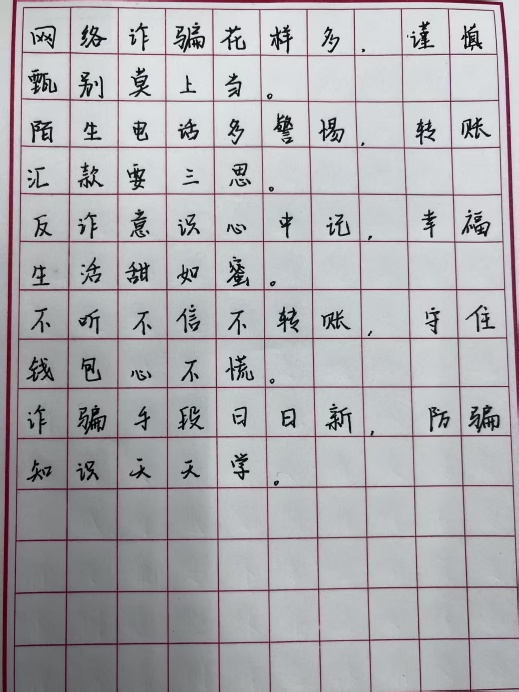 网络诈骗花样多,谨慎
甄别莫上当。
陌生电话多警惕,转账
汇款要三思。
反诈意识心中记,幸福
生活甜如蜜。
不听不信不转账,守住
钱包心不慌。
诈骗手段日日新,防骗
知识天天学。